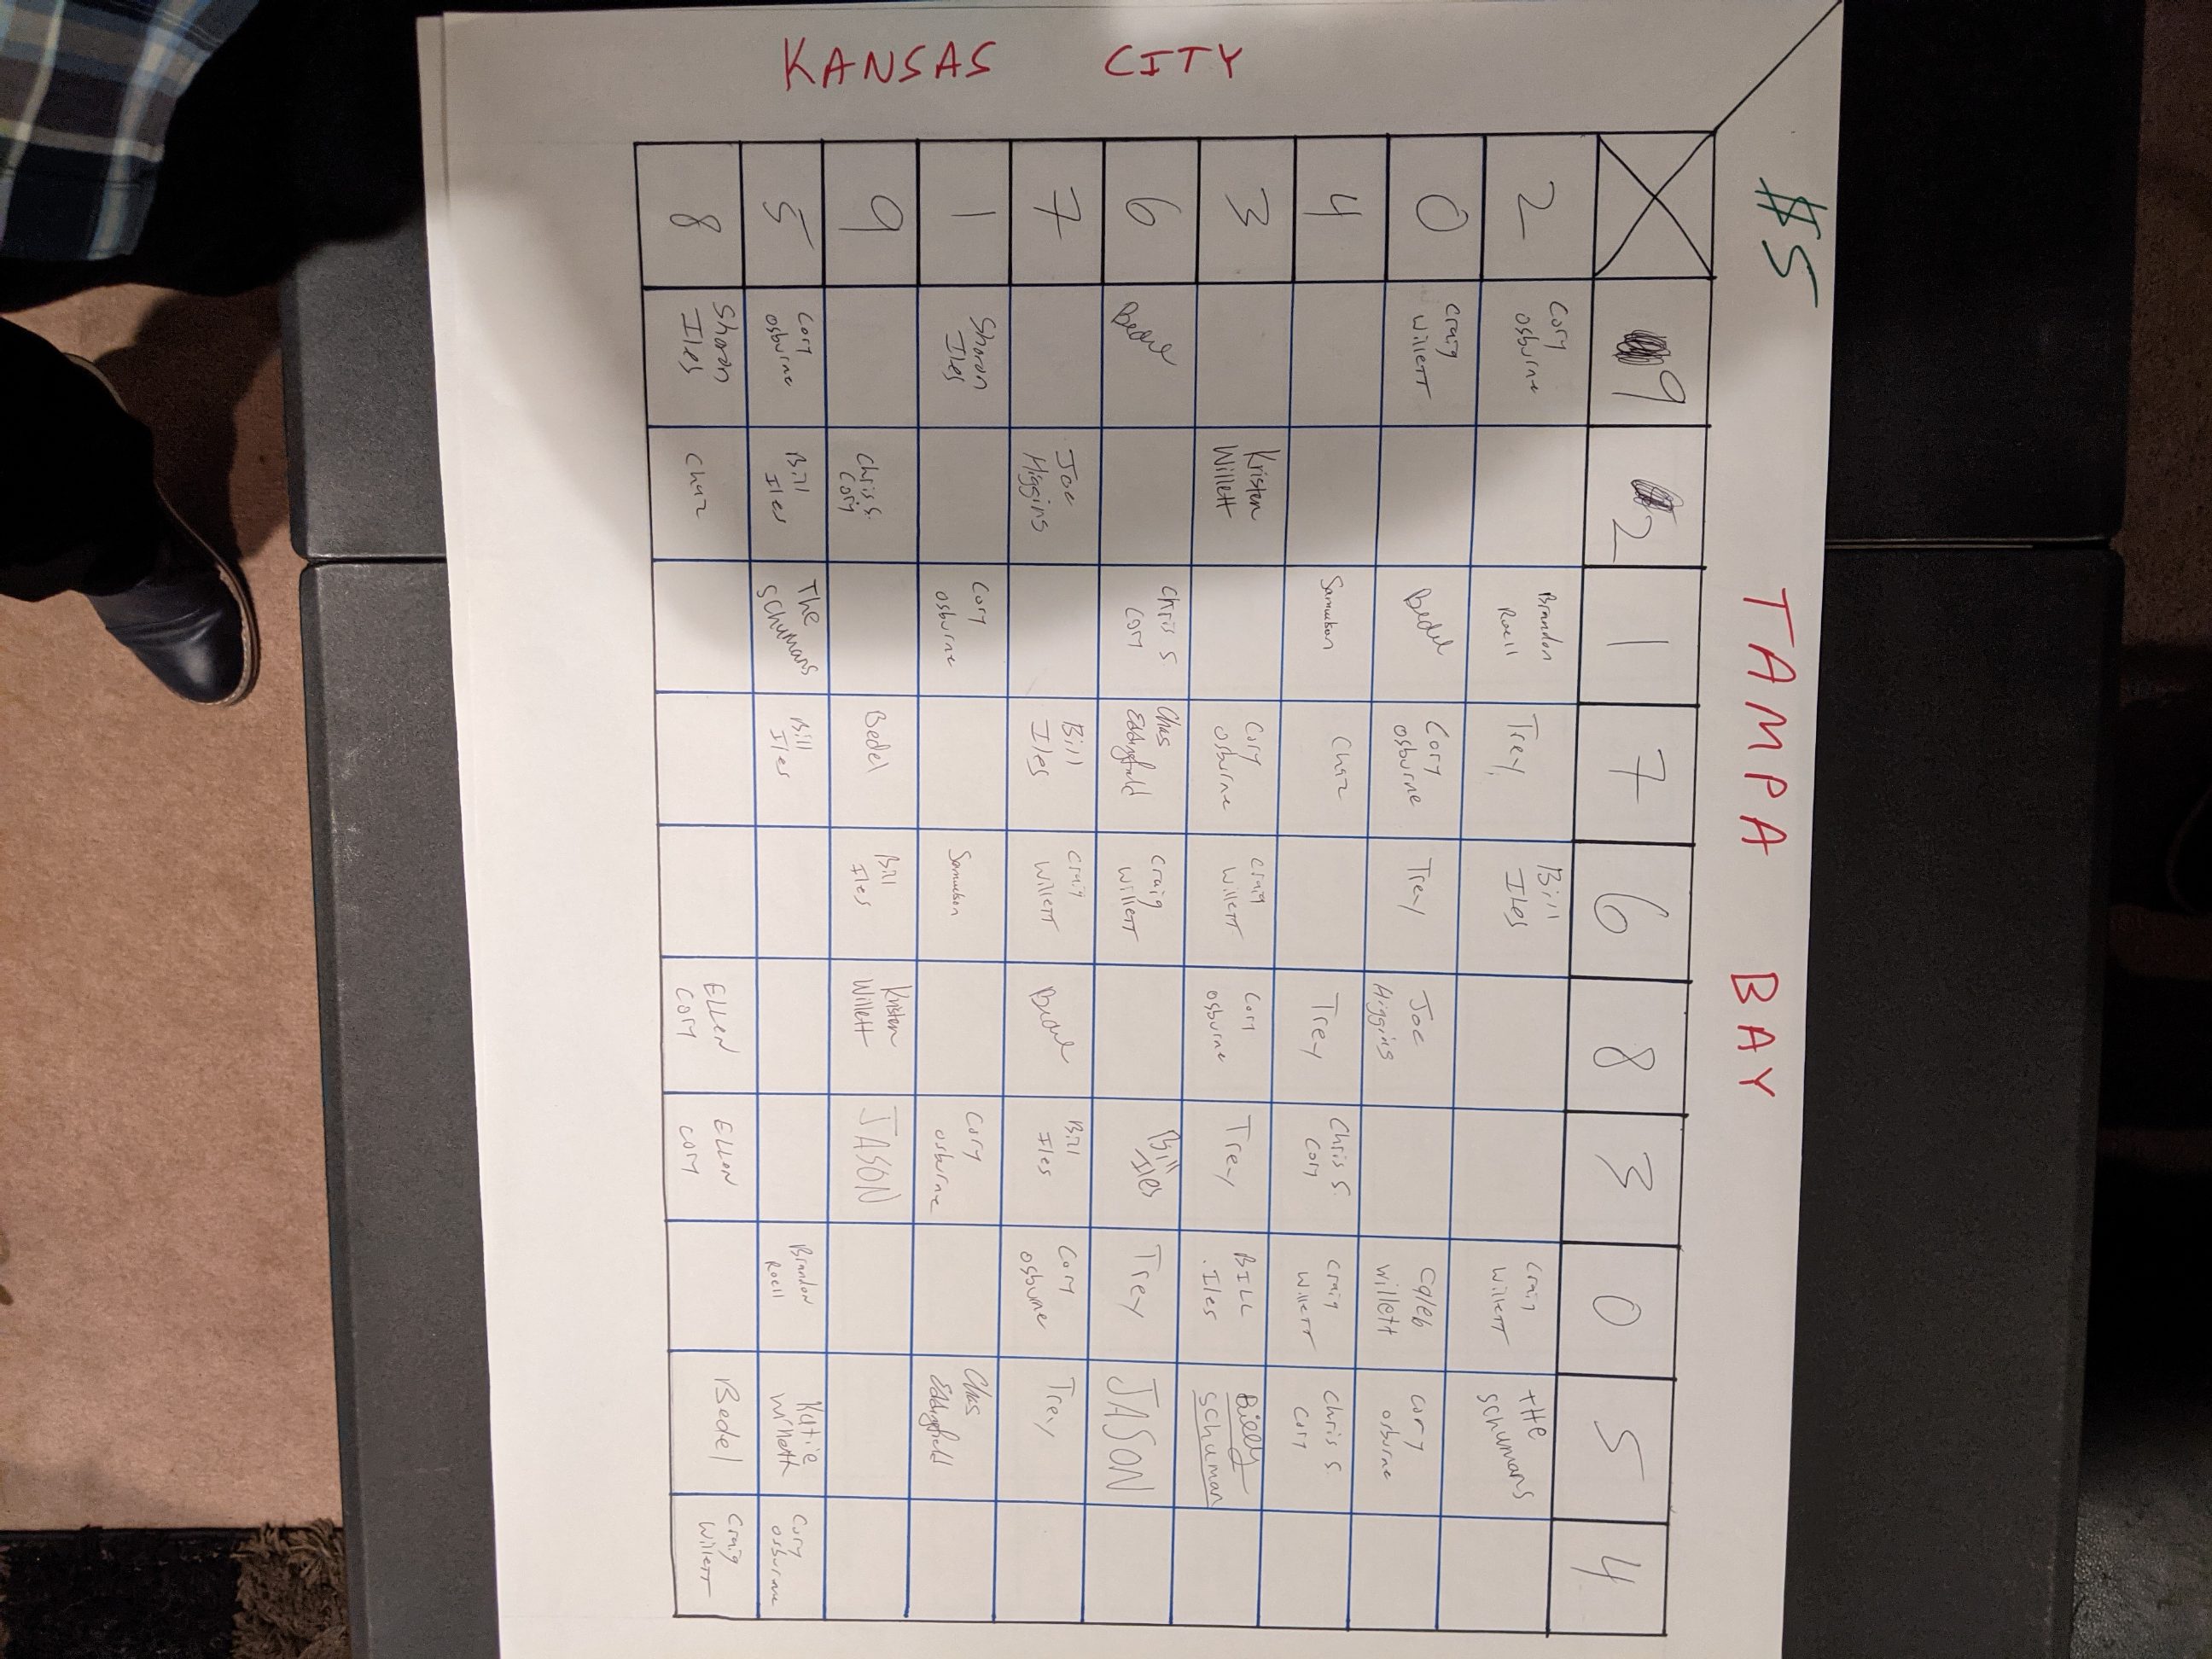 $5
TAMPA BAY
KANSAS CITY
9 2 1 7 6 8 3 0 5 4
2
Cory
osburne
Brandon
Roell
Trey
Bill
Iles
Craig
WilleTT
THE
Schumans
0
Craig
WilleTT
Bedel
Cory
osburne
Trey
Joe
Higgins
Caleb
Willett
Cory
osburne
4
Samuelson
Chaz
Trey
Chris S.
Cory
Craig
WilleTT
Chris S.
Cory
3
Kristen
Willett
Cory
osburne
Craig
WilleTT
Cory
osburne
Trey
BILL
Iles
Billy
Schuman
6
Bedel
Chris S.
Cory
Chas
Eddingfield
Craig
WilleTT
Bill
Iles
Trey
JASON
7
Joe
Higgins
Bill
Iles
Craig
WilleTT
Bedel
Bill
Iles
Cory
osburne
Trey
1
Sharon
Iles
Cory
osburne
Samuelson
Cory
osburne
Chas
Eddingfield
9
Chris S.
Cory
Bedel
Bill
Iles
Kristen
Willett
JASON
5
Cory
osburne
Bill
Iles
The
Schumans
Bill
Iles
Brandon
Roell
Katie
Willett
Cory
osburne
8
Sharon
Iles
Chaz
ELLEN
Cory
ELLEN
Cory
Bedel
Craig
WilleTT